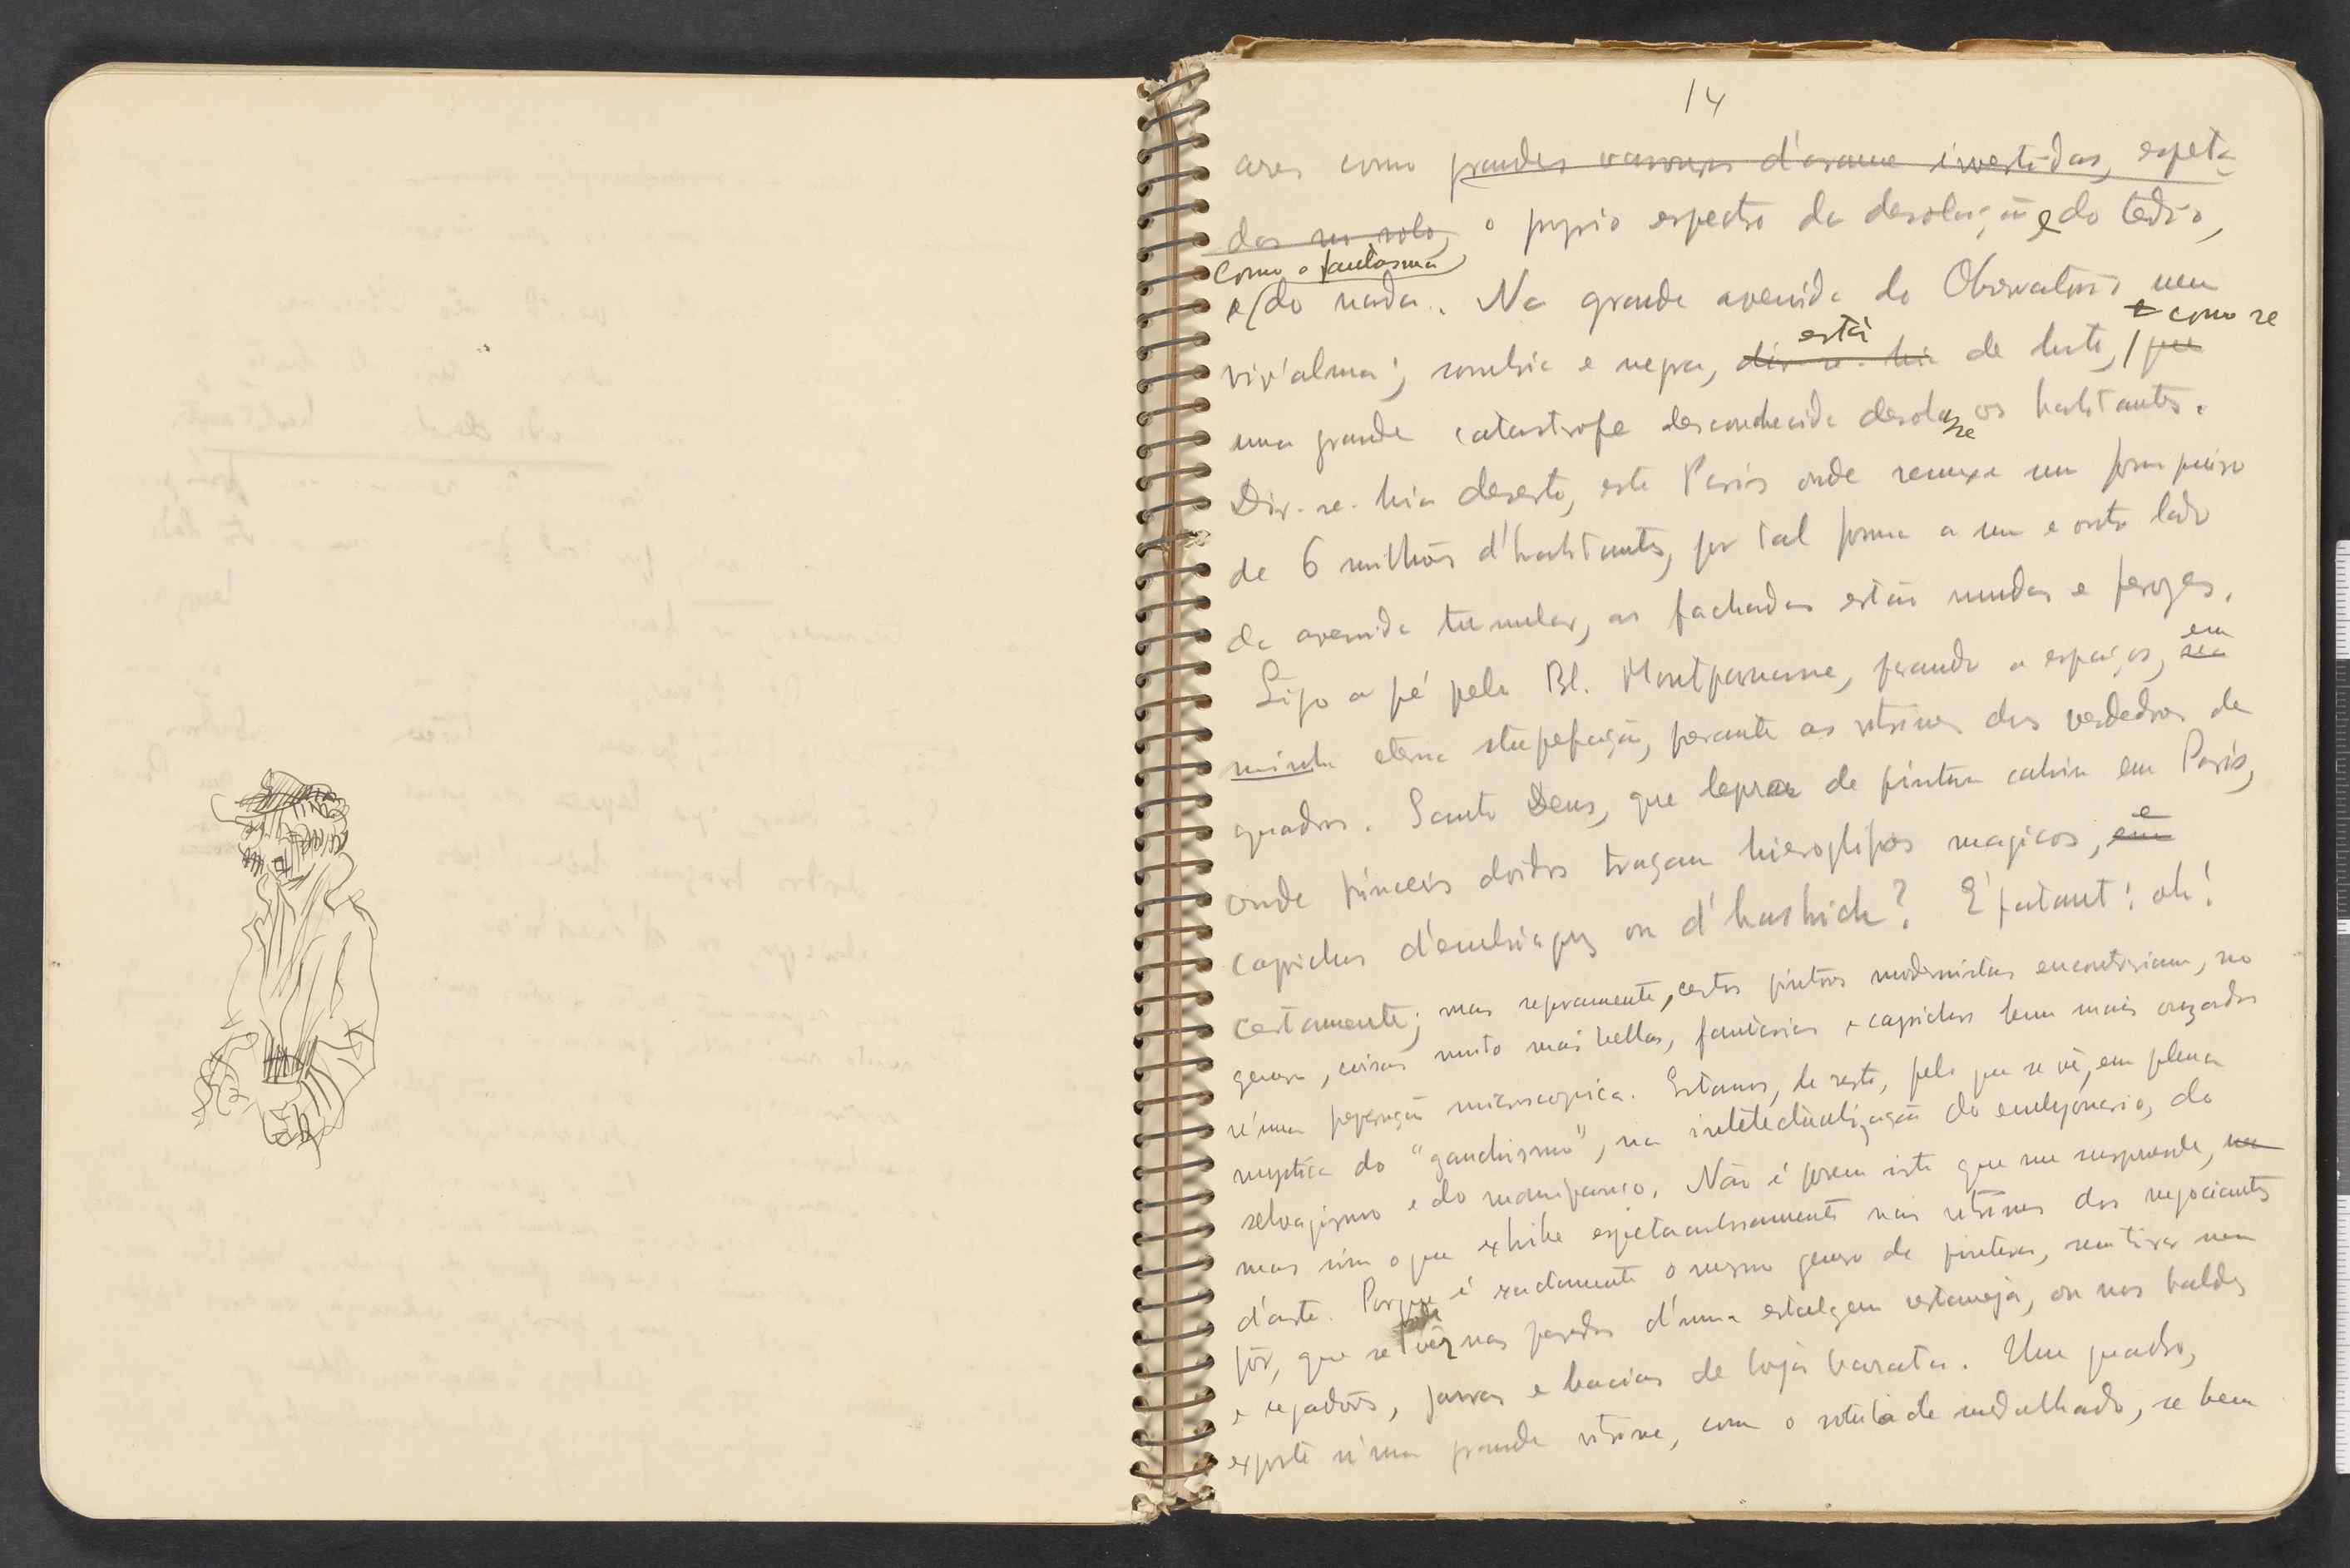 14
ares como grandes vassouras d'arame invertidas, espeta-
das no solo, o proprio espectro da desolação e do tedio,
como o fantasma
e do nada. Na grande avenida do Observatorio nem
está
como se
viv'alma; sombria e negra, dir-se-hia de luto, que
uma grande catastrofe desconhecida desolasse os habitantes.
Dir-se-hia deserto, este Paris onde remexe um formigueiro
de 6 milhões d'habitantes, por tal forma a um e outro lado
da avenida tumular, as fachadas estão mudas e ferozes.
em
Sigo a pé pelo Bl. Montparnasse, parando a espaços, na
minha eterna stupefação, perante as vitrines dos vendedores de
quadros. Santo Deus, que lepra de pintura cahiu em Paris,
e
onde pinceis doidos traçam hieroglifos magicos, em
caprichos d'embriaguez ou d'hashich? E'patant! oh!
certamente; mas seguramente, certos pintores modernistas encontrariam, no
genero, coisas muito mais bellas, fantasias e caprichos bem mais ouzados
n'uma preparação microscopica. Estamos, de resto, pelo que se vê, em plena
mystica do "gauchismo", na intelectualização do embryonario, do
selvagismo e do manipanso. Não é porem isto que me surprende, na
mas sim o que exhibe espetaculosamente nas vitrines dos negociantes
d'arte. Porque é exactamente o mesmo genero de pintura, sem tirar nem
pôr, que se vê nas paredes d'uma estalagem sertaneja, ou nos baldes
e regadores, jarras e bacias de loja barata. Um quadro,
exposto n'uma grande vitrine, com o rotulo de medalhado, se bem